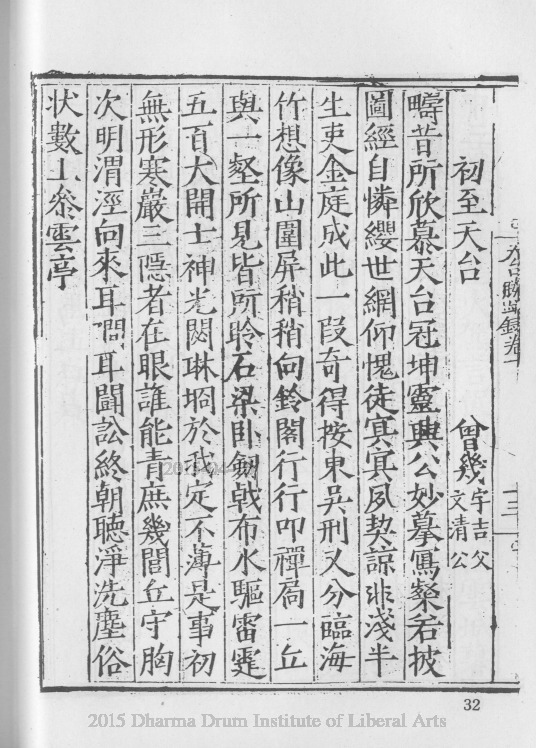 初至天台 曾幾 字吉父 文清公
疇昔所欣慕天台冠坤靈興公妙摹寫粲若披
圖經自憐纓世網仰愧徒冥冥夙契諒非淺半
生吏金庭成此一段奇得按東吳刑又分臨海
竹想像山圍屏稍稍向鈴閣行行叩禪扃一丘
與一壑所見皆所聆石梁臥劒戟布水驅雷霆
五百大開士神光閟琳坰於我定不薄是事初
無形寒巖三隱者在眼誰能青庶幾閭丘守胸
次明渭涇向來耳啁耳鬬訟終朝聽淨洗塵俗
状數上叅雲亭
天台勝蹟錄卷一
十三
32
2015 Dharma Drum Institute of Liberal Arts